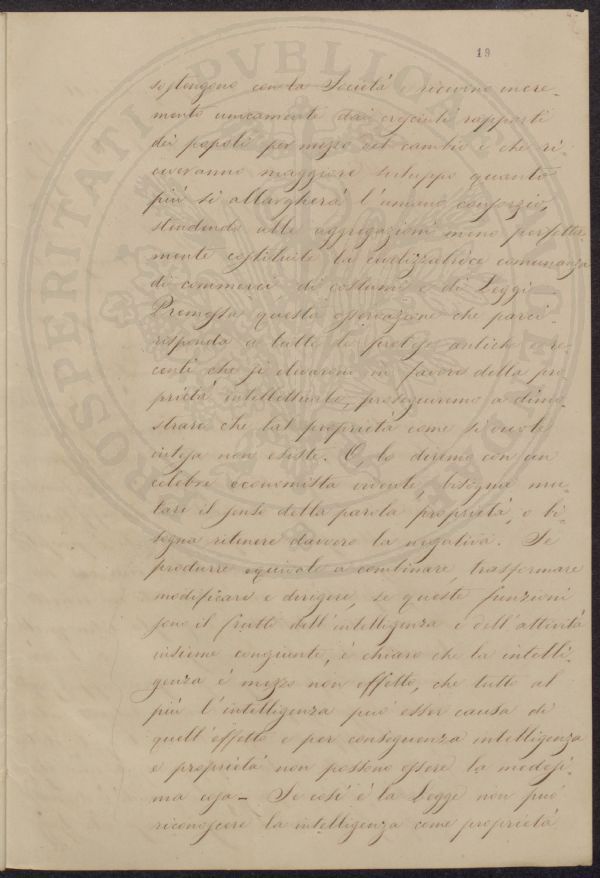 19
sostengono con la Società e ricevino incre-
mento unicamente dai cresciuti rapporti
dei popoli per mezzo del cambio e che ri-
ceveranno maggiore sviluppo quanto
più si allargherà l'umano consorzio,
stendendo alle aggregazioni meno perfetta-
mente costituite la civilizzatrice comunanza
di commerci di costumi e di Leggi -
Premessa questa osservazione che parci
risponda a tutte le proteje antiche e re-
centi che si elevarono in favore della pro
prietà intellettuale, proseguiremo a dimo-
strare che tal proprietà come si vuole
intesa non esiste. O, lo diremo con un
celebre economista vivente, bisogna mu-
tare il senso della parola proprietà, o bi-
sogna ritenere davvero la negativa. Se
produrre equivale a combinare, trasformare
modificare e dirigere, se queste funzioni
sono il frutto dell'intelligenza e dell'attività
insieme congiunte, è chiaro che la intelli-
genza è mezzo non effetto, che tutto al
più l'intelligenza può esser causa di
quell'effetto e per conseguenza intelligenza
e proprietà non possono essere la medesi-
ma cosa - Se così è la Legge non può
riconoscere la intelligenza come proprietà
PROSPERITATI PVBLICAE AVGENDAE